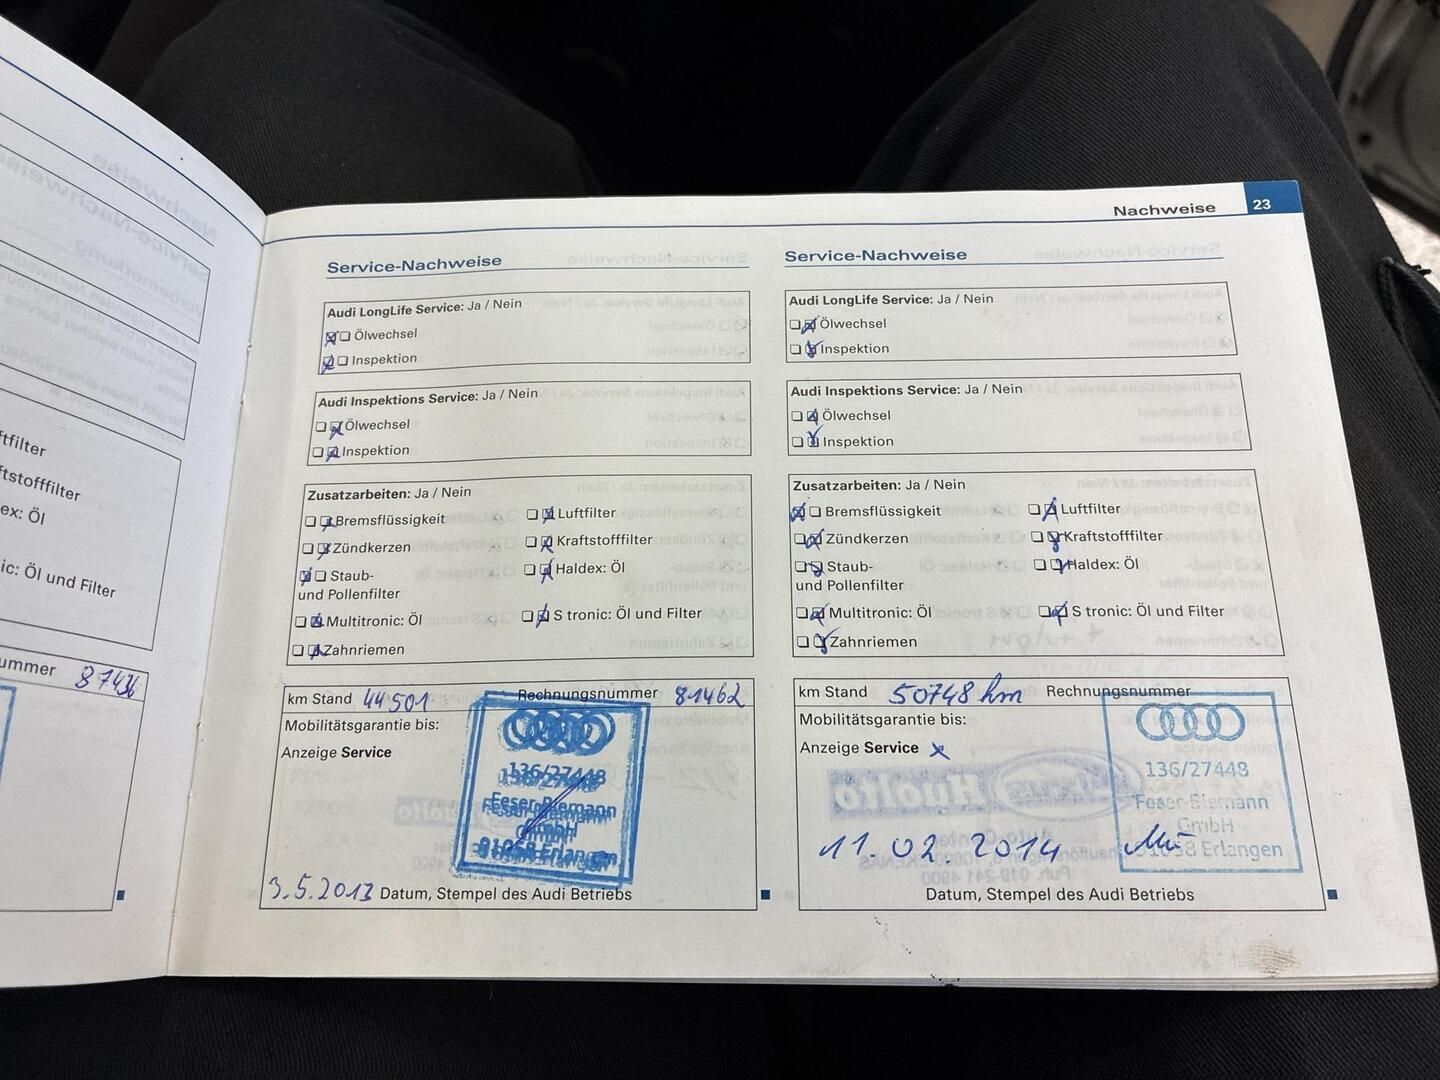 ftfilter
ftstofffilter
ex: Öl
ic: Öl und Filter
ummer 87436
Nachweise 23
Service-Nachweise
Audi LongLife Service: Ja / Nein
Ölwechsel
Inspektion
Audi Inspektions Service: Ja / Nein
Ölwechsel
Inspektion
Zusatzarbeiten: Ja / Nein
Bremsflüssigkeit Luftfilter
Zündkerzen Kraftstofffilter
Staub- Haldex: Öl
und Pollenfilter
Multitronic: Öl S tronic: Öl und Filter
Zahnriemen
km Stand 44501 Rechnungsnummer 81462
Mobilitätsgarantie bis:
Anzeige Service
136/27448
Feser-Biemann
GmbH
91058 Erlangen
3.5.2013 Datum, Stempel des Audi Betriebs
Service-Nachweise
Audi LongLife Service: Ja / Nein
Ölwechsel
Inspektion
Audi Inspektions Service: Ja / Nein
Ölwechsel
Inspektion
Zusatzarbeiten: Ja / Nein
Bremsflüssigkeit Luftfilter
Zündkerzen Kraftstofffilter
Staub- Haldex: Öl
und Pollenfilter
Multitronic: Öl S tronic: Öl und Filter
Zahnriemen
km Stand 50748 km Rechnungsnummer
Mobilitätsgarantie bis:
Anzeige Service x
136/27448
Feser-Biemann
GmbH
91058 Erlangen
11.02.2014
Datum, Stempel des Audi Betriebs